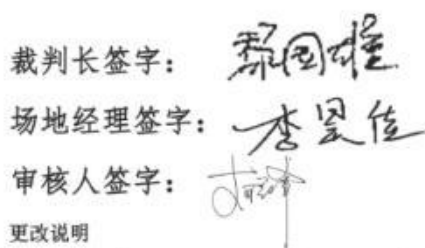 裁判长签字：黎国雄
场地经理签字：李昊佳
审核人签字：
更改说明